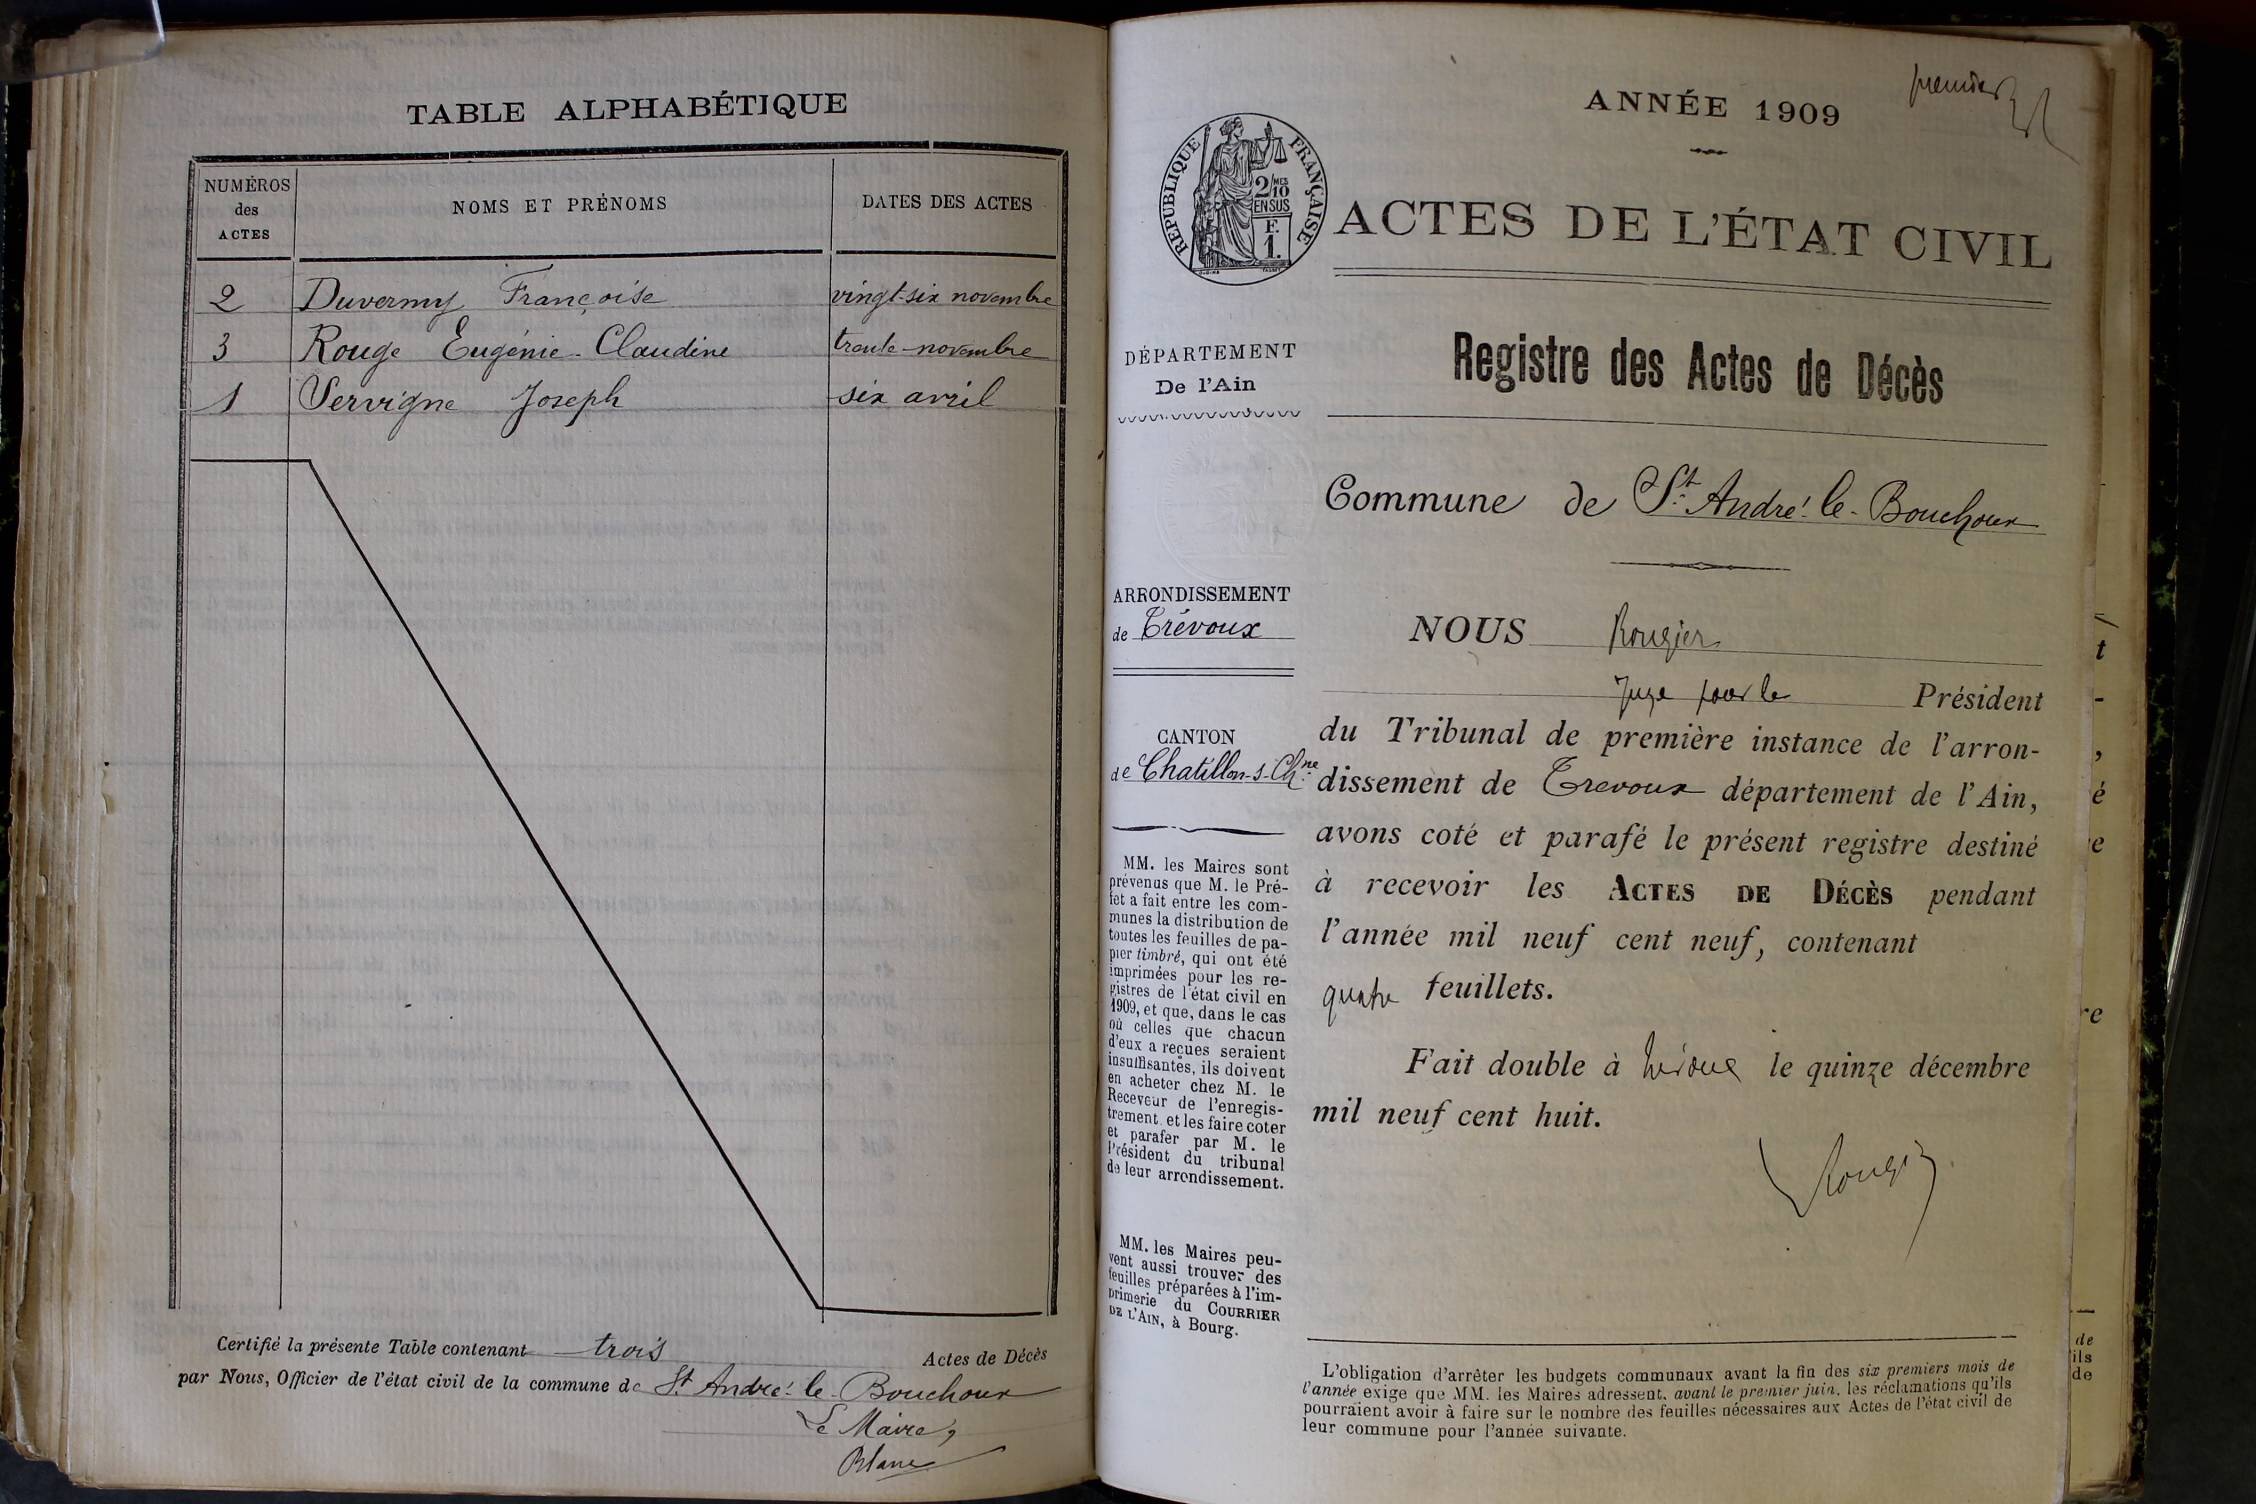 TABLE ALPHABÉTIQUE
NUMÉROS
des
ACTES
NOMS ET PRÉNOMS
DATES DES ACTES
2 Duvernay Françoise vingt-six novembre
3 Rouge Eugénie-Claudine trente-novembre
1 Servigne Joseph six avril
Certifié la présente Table contenant trois Actes de Décès
par Nous, Officier de l'état civil de la commune de St. André-le-Bouchoux
Le Maire,
Blanc
premier
ANNÉE 1909
RÉPUBLIQUE FRANÇAISE
2/10 MES
EN SUS
F.
1.
ACTES DE L'ÉTAT CIVIL
DÉPARTEMENT
De l'Ain
Registre des Actes de Décès
Commune de St. André-le-Bouchoux
ARRONDISSEMENT
de Trévoux
CANTON
de Chatillon-s-Chne
MM. les Maires sont
prévenus que M. le Pré-
fet a fait entre les com-
munes la distribution de
toutes les feuilles de pa-
pier timbré, qui ont été
imprimées pour les re-
gistres de l'état civil en
1909, et que, dans le cas
où celles que chacun
d'eux a reçues seraient
insuffisantes, ils doivent
en acheter chez M. le
Receveur de l'enregis-
trement et les faire coter
et parafer par M. le
Président du tribunal
de leur arrondissement.
MM. les Maires peu-
vent aussi trouver des
feuilles préparées à l'im-
primerie du COURRIER
DE L'AIN, à Bourg.
NOUS Rougier
Juge pour le Président
du Tribunal de première instance de l'arron-
dissement de Trevoux département de l'Ain,
avons coté et parafé le présent registre destiné
à recevoir les ACTES DE DÉCÈS pendant
l'année mil neuf cent neuf, contenant
quatre feuillets.
Fait double à Trévoux le quinze décembre
mil neuf cent huit.
Rougier
L'obligation d'arrêter les budgets communaux avant la fin des six premiers mois de
l'année exige que MM. les Maires adressent, avant le premier juin, les réclamations qu'ils
pourraient avoir à faire sur le nombre des feuilles nécessaires aux Actes de l'état civil de
leur commune pour l'année suivante.